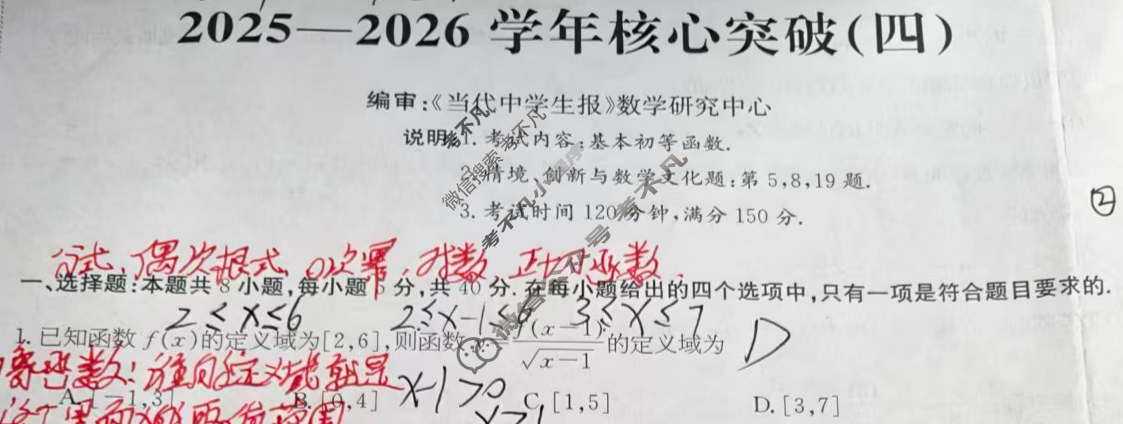 2025—2026 学年核心突破(四)
编审:《当代中学生报》数学研究中心
说明:1. 考试内容:基本初等函数.
2. 情境、创新与数学文化题:第 5,8,19 题.
3. 考试时间 120 分钟,满分 150 分.
②
分式、偶次根式、0次幂、对数、正切函数.
一、选择题:本题共 8 小题,每小题 5 分,共 40 分. 在每小题给出的四个选项中,只有一项是符合题目要求的.
2≤x≤6 2≤x-1≤6 3≤x≤7
1. 已知函数 f(x)的定义域为[2,6],则函数 y= f(x-1)/√x-1 的定义域为 D
定义域就是
A. [-1,3] B. [0,4] x-1>0 C. [1,5] D. [3,7]
x>1